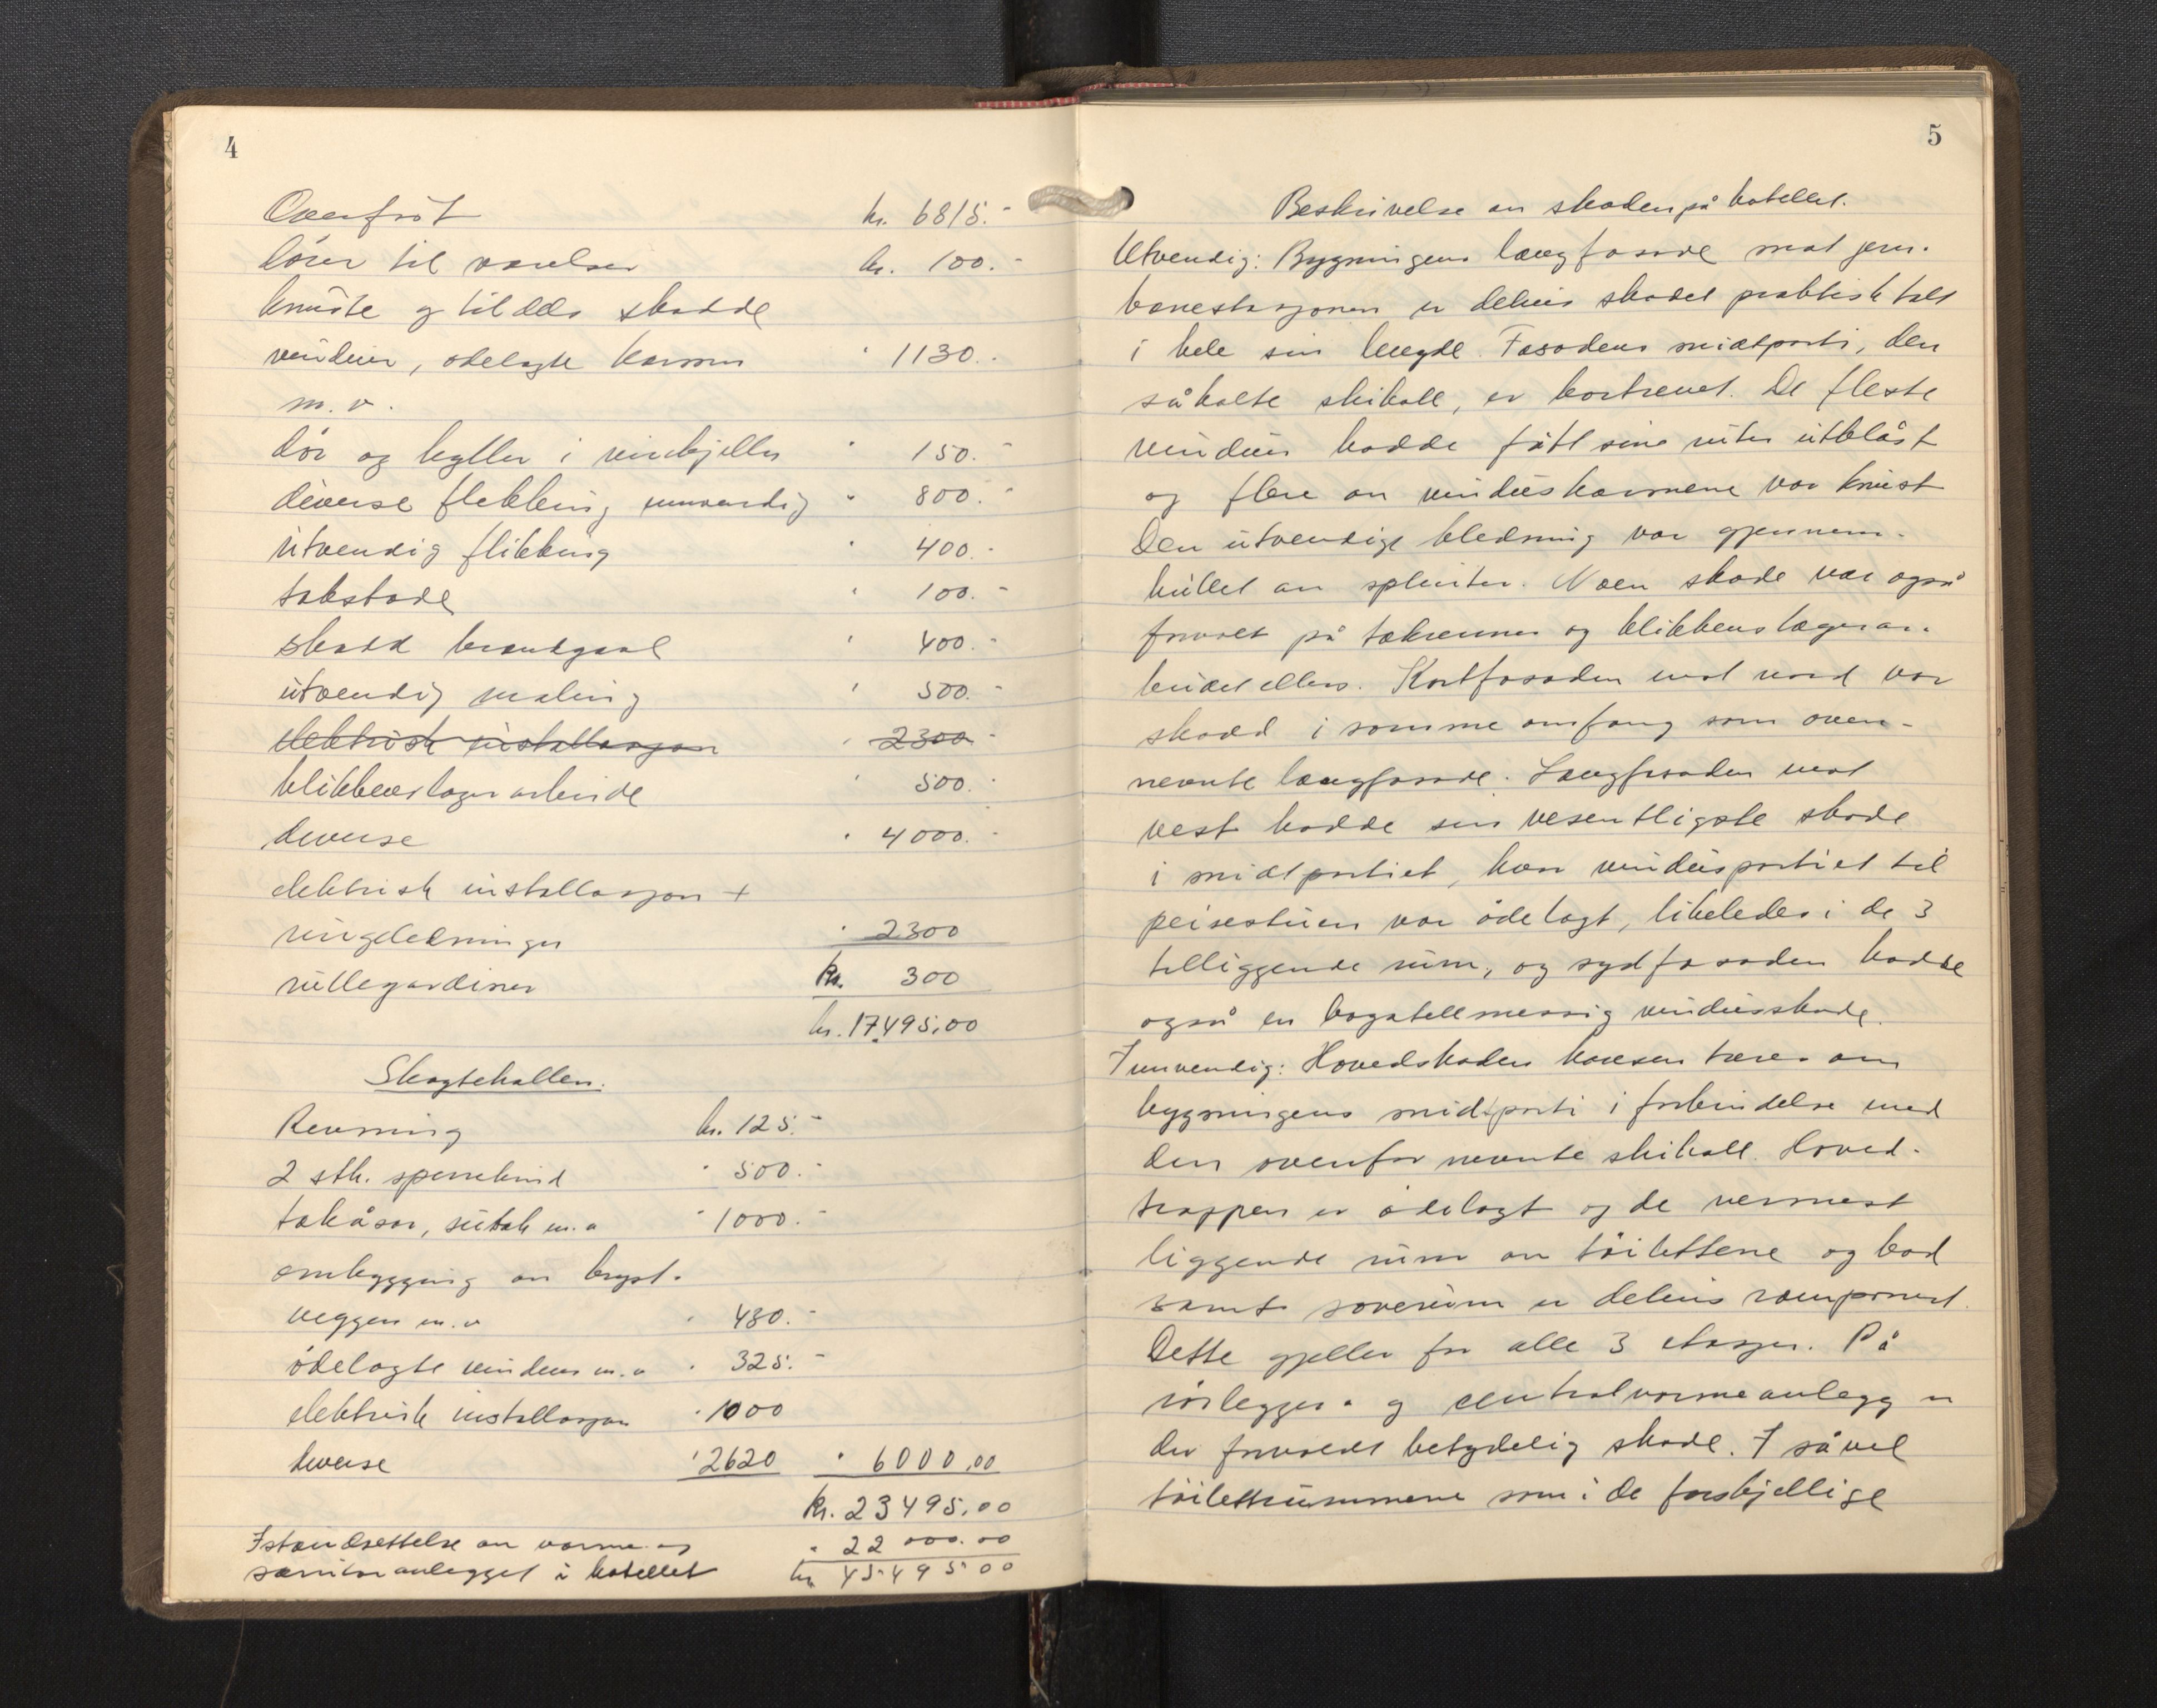 4
Overført kr. 6815.-
dører til værelser kr. 100.-
knuste og til dels skadde
vinduer, ødelagte karmer " 1130.-
m.v.
dør og hyller i vinkjeller " 150.-
diverse flekking innvendig " 800.-
utvendig flikking " 400.-
takskade " 100.-
skadd brandgavl " 400.-
utvendig maling " 500.-
elektrisk installasjon " 2300.-
blikkenslagerarbeide " 500.-
diverse " 4000.-
elektrisk installasjon +
ringeledninger " 2300
rullegardiner kr. 300
kr. 17495,00
Skogtehallen.
Revning kr. 125.-
2 stk. sperrebind " 500.-
takåser, sutak m.v " 1000.-
ombygging av bryst-
veggen m.v " 430.-
ødelagte vinduer m.v " 325.-
elektrisk installasjon " 1000
diverse " 2620 " 6000,00
kr. 23495,00
Istandsettelse av varme- og " 22 000.00
sanitæranlegget i hotellet kr 45495 00
5
Beskrivelse av skaden på hotellet.
Utvendig: Bygningens langfasade mot jern-
banestasjonen er delvis skadet praktisk talt
i hele sin lengde. Fasadens midtparti, den
såkalte skihall, er bortrevet. De fleste
vinduer hadde fått sine ruter utblåst
og flere av vinduskarmene var knust
Den utvendige kledning var gjennem-
hullet av splinter. Noen skade var også
forvoldt på takrenner og blikkenslagerar-
beidet ellers. Kortfasaden mot nord var
skadd i samme omfang som oven-
nevnte langfasade. Langfasaden mot
vest hadde sin vesentligste skade
i midtpartiet, hvor vinduspartiet til
peisestuen var ødelagt, likeledes i de 3
tilliggende rum, og sydfasaden hadde
også en bagatellmessig vindusskade.
Innvendig: Hovedskaden konsentreres om
bygningens midtparti i forbindelse med
den ovenfor nevnte skihall. Hoved-
trappen er ødelagt og de nærmest
liggende rum av toilettene og bad
samt soverum er delvis ramponert.
Dette gjelder for alle 3 etasjer. På
rørlegger- og centralvarmeanlegg er
der forvoldt betydelig skade. I såvel
toilettrummene som i de forskjellige